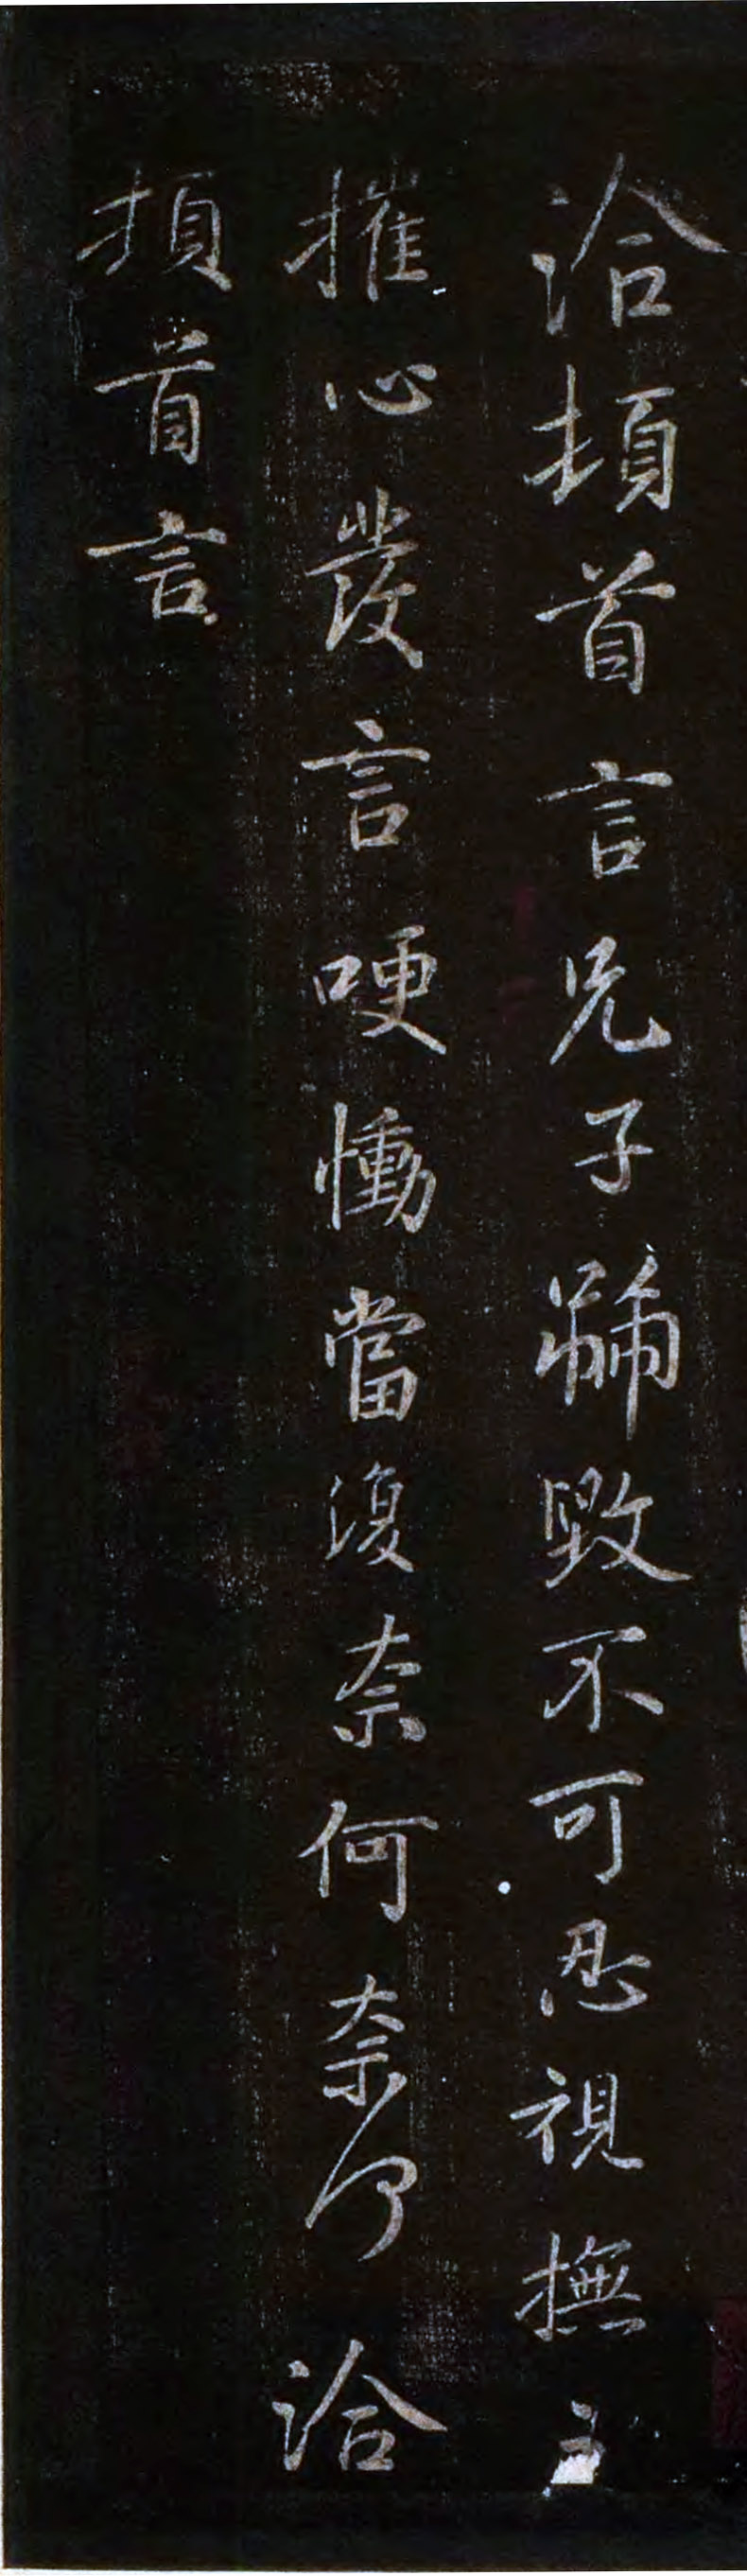 洽頓首言兄子號毀不可忍視撫之
摧心發言哽慟當復奈何奈何洽
頓首言